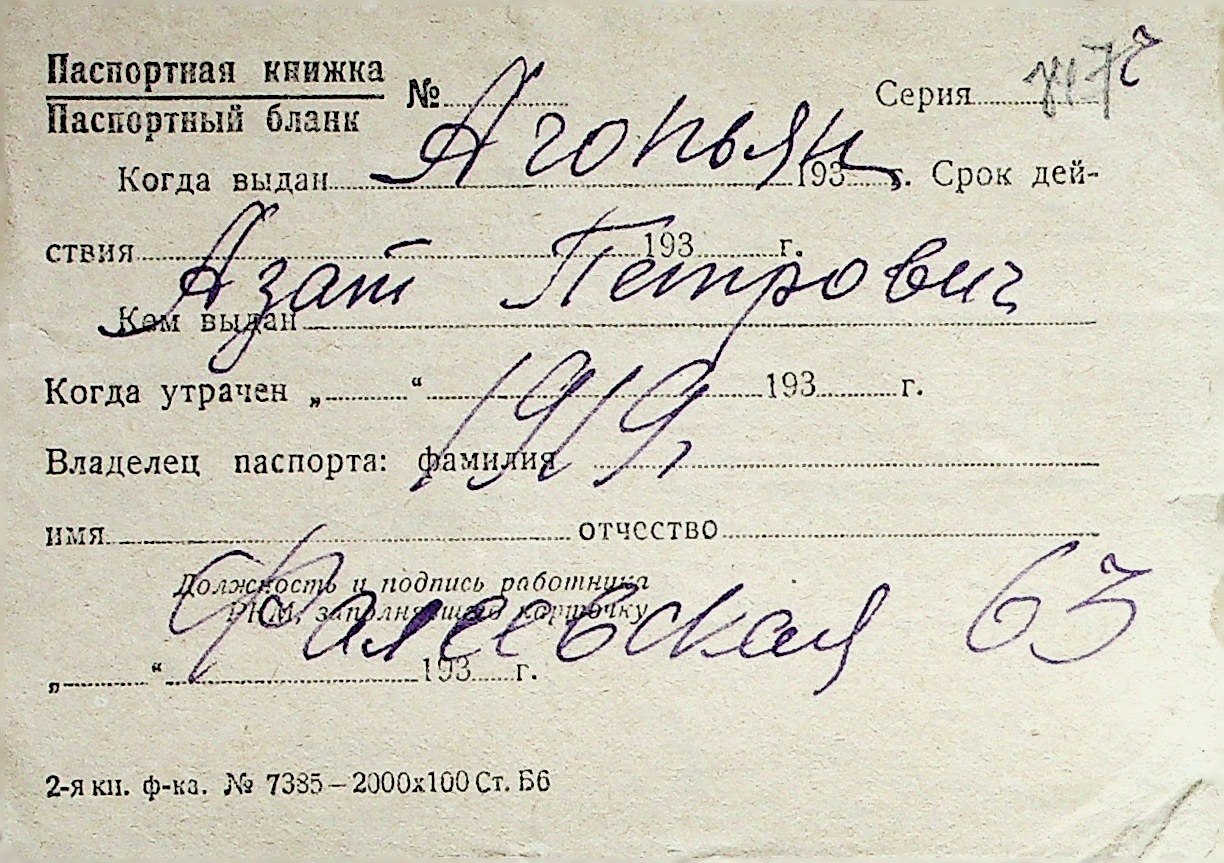 Паспортная книжка
Паспортный бланк
№ Серия
Агопьян
Когда выдан 193 г. Срок дей-
ствия 193 г.
Азат Петрович
Кем выдан
Когда утрачен „ “ 193 г.
1919
Владелец паспорта: фамилия
имя отчество
Должность и подпись работника
РКМ, заполнявшего карточку
Фалеевская 63
„ “ 193 г.
2-я кн. ф-ка. № 7385—2000х100 Ст. Б6